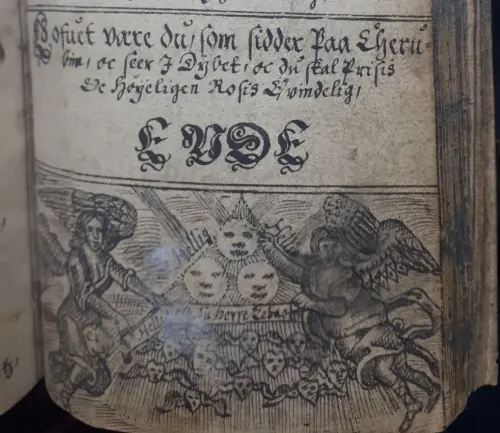 Lofuet være du, som sidder Paa Cheru-
bin, oc seer I Dybet, oc du skal Prisis
Oc Höyeligen Rosis Evindelig,
ENDE
Hellig
du herre Zebaoth